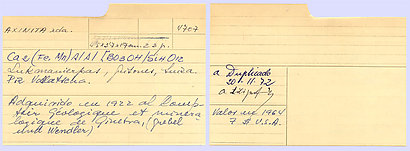 AXINITA
4707
Ca2(Fe, Mn)Al Al [BO3OH/Si4O12
Lukmanierpass, Grisones, Suiza.
Pk Villabella.
Adquirido en 1922 al Comp-
toir Géologique et minera-
logique de Ginebra, (Grebel
und Wendler)
a Duplicado
20.11.72
Valor en 1964
7 $ U.S.A.